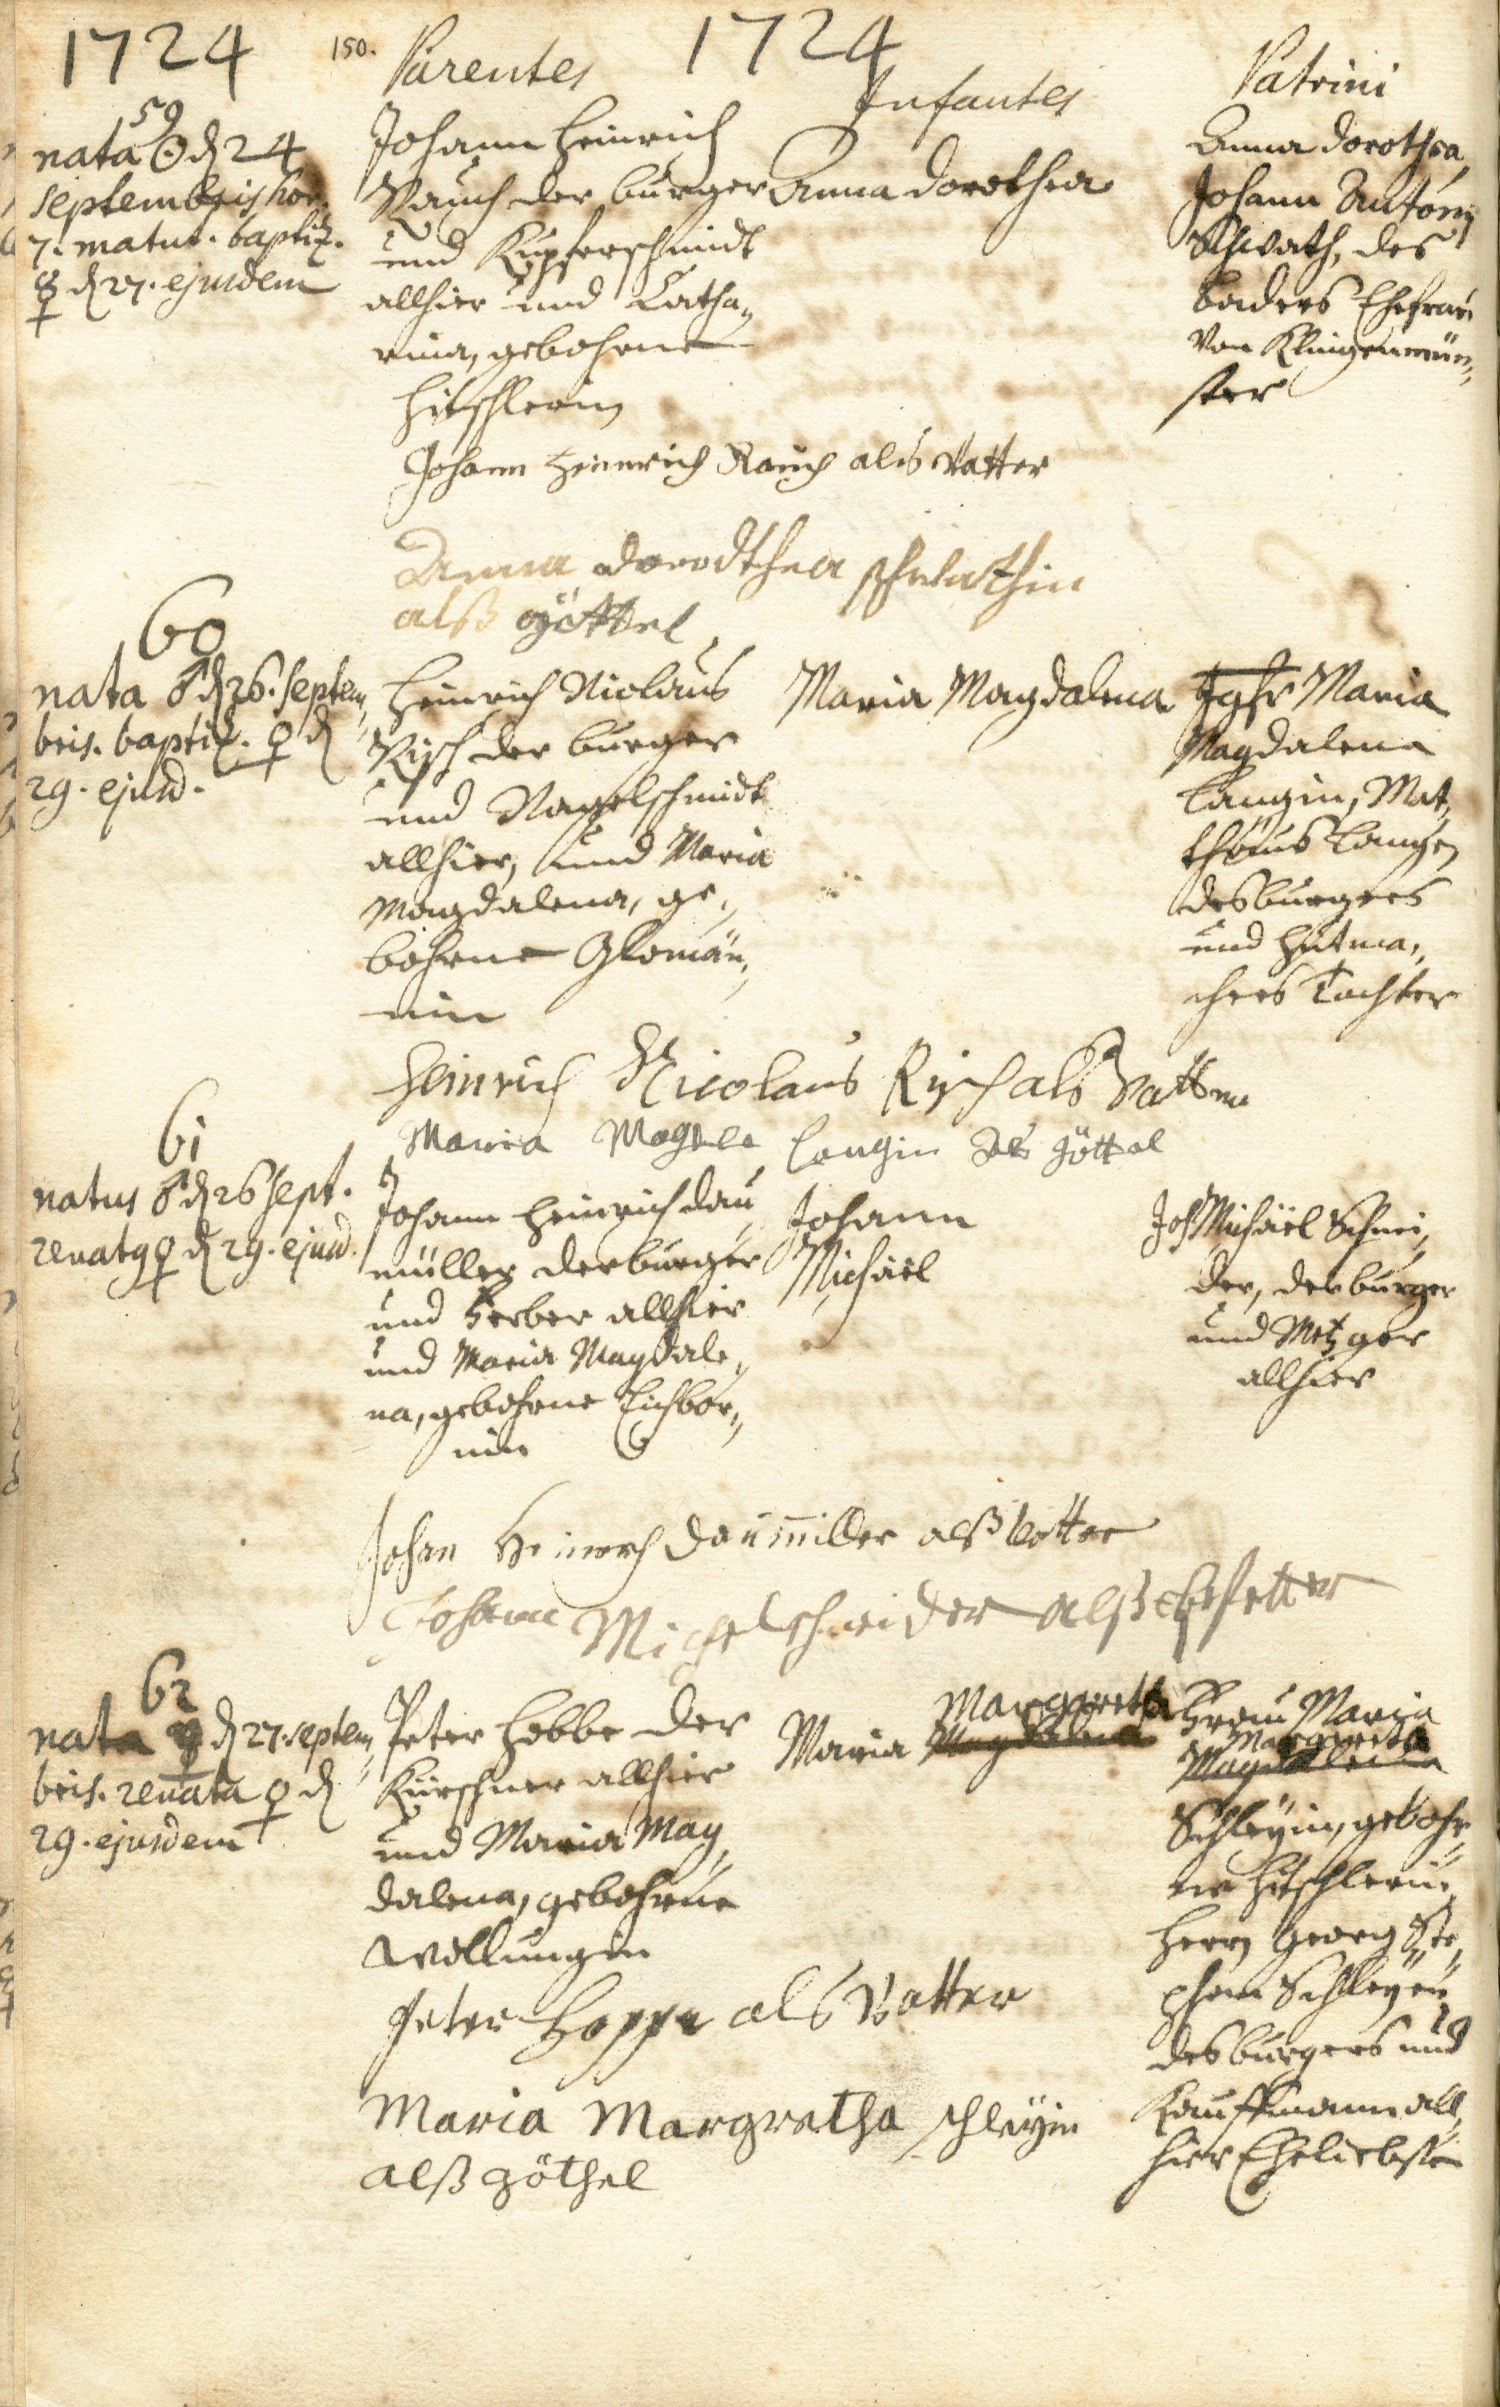 1724
150.
1724
Parentes
Infantes
Patrini
59
nata ☉ d 24
septembris hor.
7. matut. baptiz.
☿ d 27. ejusdem
Johann Heinrich
Rauch der burger
und Kupferschmidt
allhier und Catha„
rina, gebohrne
Hitschlerin
Anna Dorothea
Anna Dorothea,
Johann Antonÿ
Schwath, des
baders Ehefrau
von Klingenmün„
ster
Johann Heinrich Rauch als Vatter
Anna dorodthea schwathin
alß göttel
60
nata ♂ d 26. septem„
bris. baptiz. ♀ d
29. ejusd.
Heinrich Niclaus
Risch der burger
und Nagelschmidt
allhier, und Maria
Magdalena, ge„
bohrne Glomän„
nin
Maria Magdalena
Jgfr Maria
Magdalena
Langin, Mat„
thäus Langen
des burgers
und Hutma„
chers Tochter
Heinrich Nicolaus Risch als Vatter
Maria Magdle Langin als göttel
61
natus ♂ d 26 sept.
renatus ♀ d 29. ejusd.
Johann Heinrich Dau„
müller der burger
und Gerber allhier
und Maria Magdale„
na, gebohrne Eichbor„
nin
Johann
Michäel
Joh Michäel Schnei„
der, der burger
und Metzger
allhier
Johan Heinrich daumiller alß vatter
Johann Michel schneider alß pfetter
62
nata ☿ d 27. septem„
bris. renata ♀ d
29. ejusdem
Peter Hobbe der
Kürschner allhier
und Maria Mag„
dalena, gebohrne
Wollungen
Margaretha
Maria Magdalena
Frau Maria
Margareta
Magdalena
Schleÿin, gebohr„
ne Hitschlerin,
Herrn Georg Ste„
phan Schleÿen
des burgers und
Kauffmann all„
hier Eheliebste
Peter Hoppe als Vatter
Maria Margretha schleÿin
alß göthel